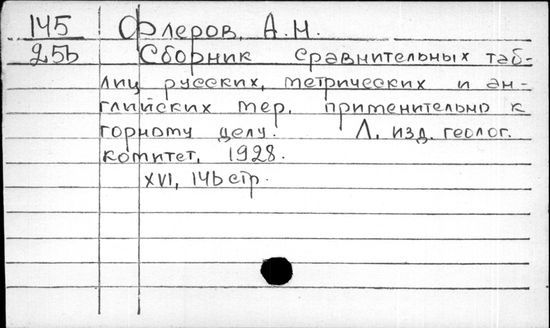 145 Флеров, А.Н.
25b Сборник сравнительных таб-
лиц русских, метрических и ан-
глийских мер, применительно к
горному целу. Л. изд. геолог.
комитет, 1928.
XVI, 146 стр.